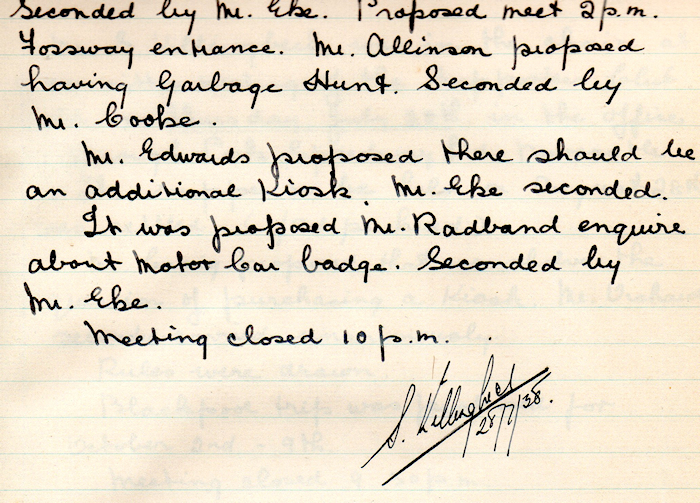 Seconded by Mr. Eke. Proposed meet 2 p.m.
Fossway entrance. Mr. Allinson proposed
having Garbage Hunt. Seconded by
Mr. Cooke.
Mr. Edwards proposed there should be
an additional Kiosk. Mr. Eke seconded.
It was proposed Mr. Radband enquire
about Motor Car badge. Seconded by
Mr. Eke.
Meeting closed 10 p.m.
S.
28/7/38.